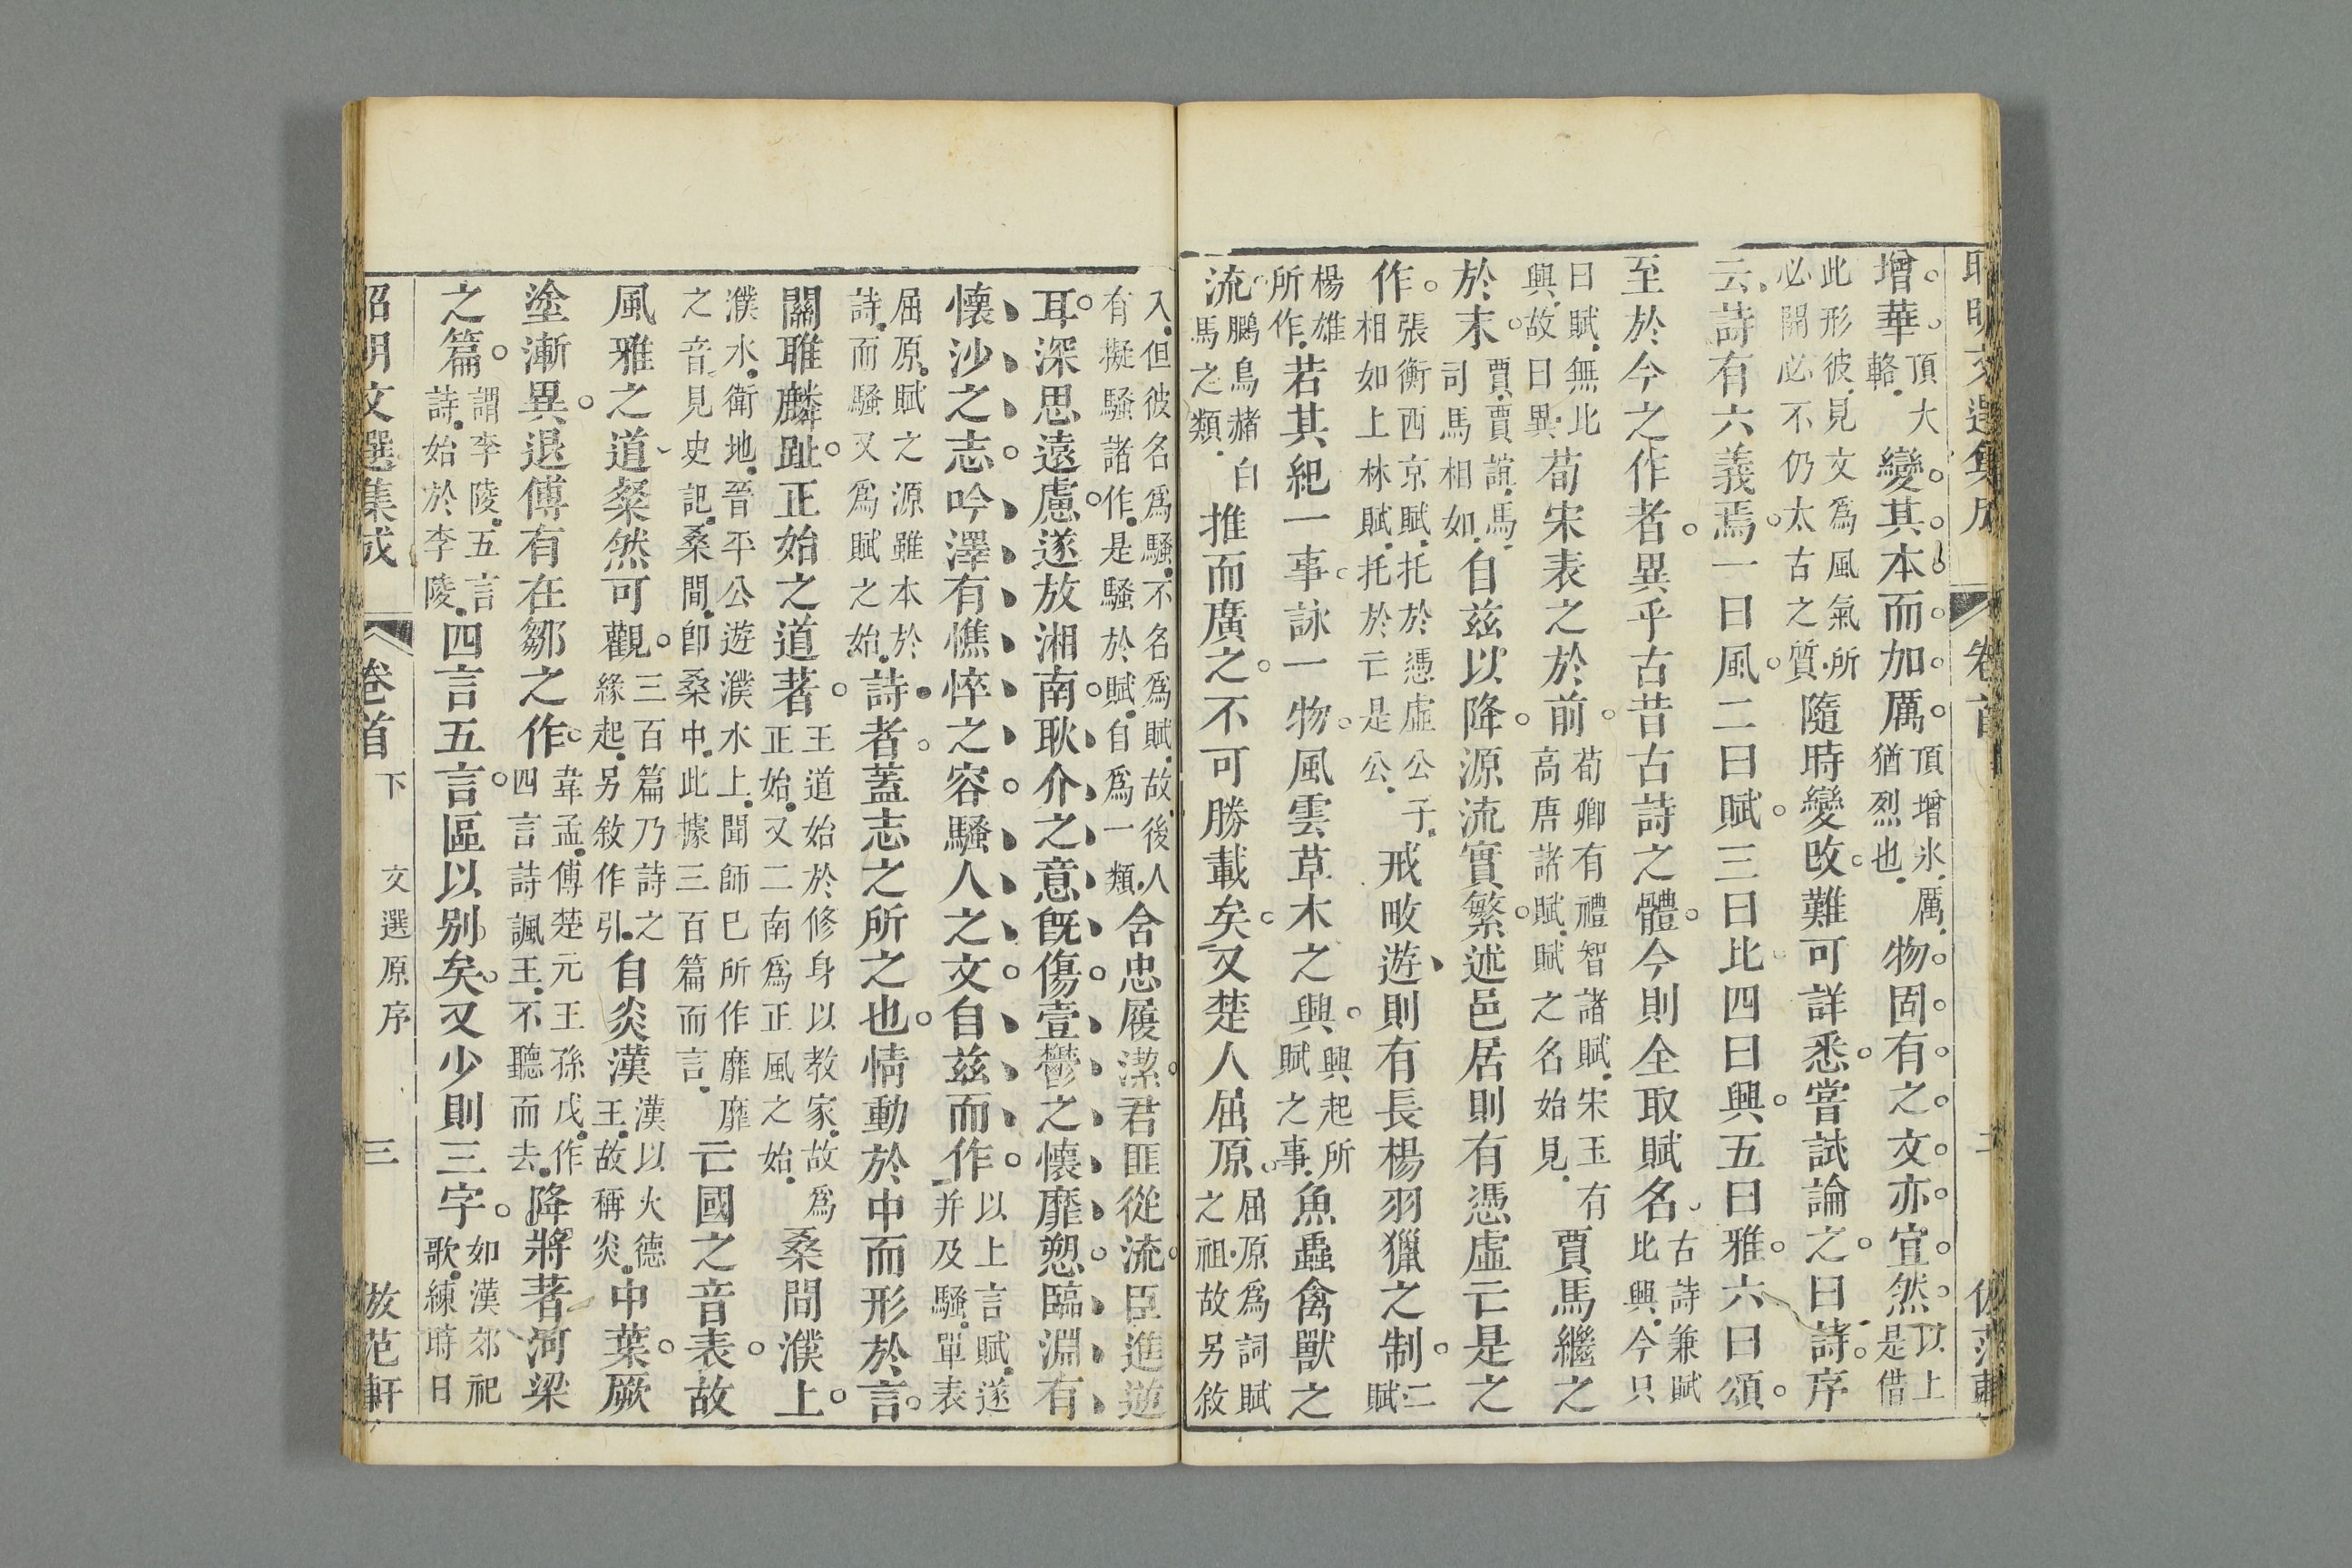 昭明文選集成　卷首　二
增華頂大輅變其本而加厲頂增氷厲猶烈也物固有之文亦宜然以上是借
此形彼見文爲風氣所必開必不仍太古之質隨時變改難可詳悉嘗試論之曰詩序
云詩有六義焉一曰風二曰賦三曰比四曰興五曰雅六曰頌
至於今之作者異乎古昔古詩之體今則全取賦名古詩兼賦比興今只
曰賦無比興故曰異荀宋表之於前荀卿有禮智諸賦宋玉有高唐諸賦賦之名始見賈馬繼之
於末賈賈誼馬司馬相如自兹以降源流實繁述邑居則有憑虛亡是之
作張衡西京賦托於憑虛公子相如上林賦托於亡是公戒畋遊則有長楊羽獵之制二賦
楊雄所作若其紀一事詠一物風雲草木之興興起所賦之事魚蟲禽獸之
流鵩鳥赭白馬之類推而廣之不可勝載矣又楚人屈原屈原爲詞賦之祖故另敘
入但彼名爲騷不名爲賦故後人有擬騷諸作是騷於賦自爲一類含忠履潔君匪從流臣進逆
耳深思遠慮遂放湘南耿介之意旣傷壹鬱之懷靡愬臨淵有
懷沙之志吟澤有憔悴之容騷人之文自兹而作以上言賦遂并及騷單表
屈原賦之源雖本於詩而騷又爲賦之始詩者蓋志之所之也情動於中而形於言
關雎麟趾正始之道著王道始於修身以教家故爲正始又二南爲正風之始桑間濮上
濮水衛地晉平公遊濮水上聞師巳所作靡靡之音見史記桑間卽桑中此據三百篇而言亡國之音表故
風雅之道粲然可觀三百篇乃詩之緣起另敘作引自炎漢漢以火德王故稱炎中葉厥
塗漸異退傅有在鄒之作韋孟傅楚元王孫戊作四言詩諷王不聽而去降將著河梁
之篇謂李陵五言詩始於李陵四言五言區以别矣又少則三字如漢郊祀歌練時日
昭明文選集成　卷首　下　文選原序　三　放范軒